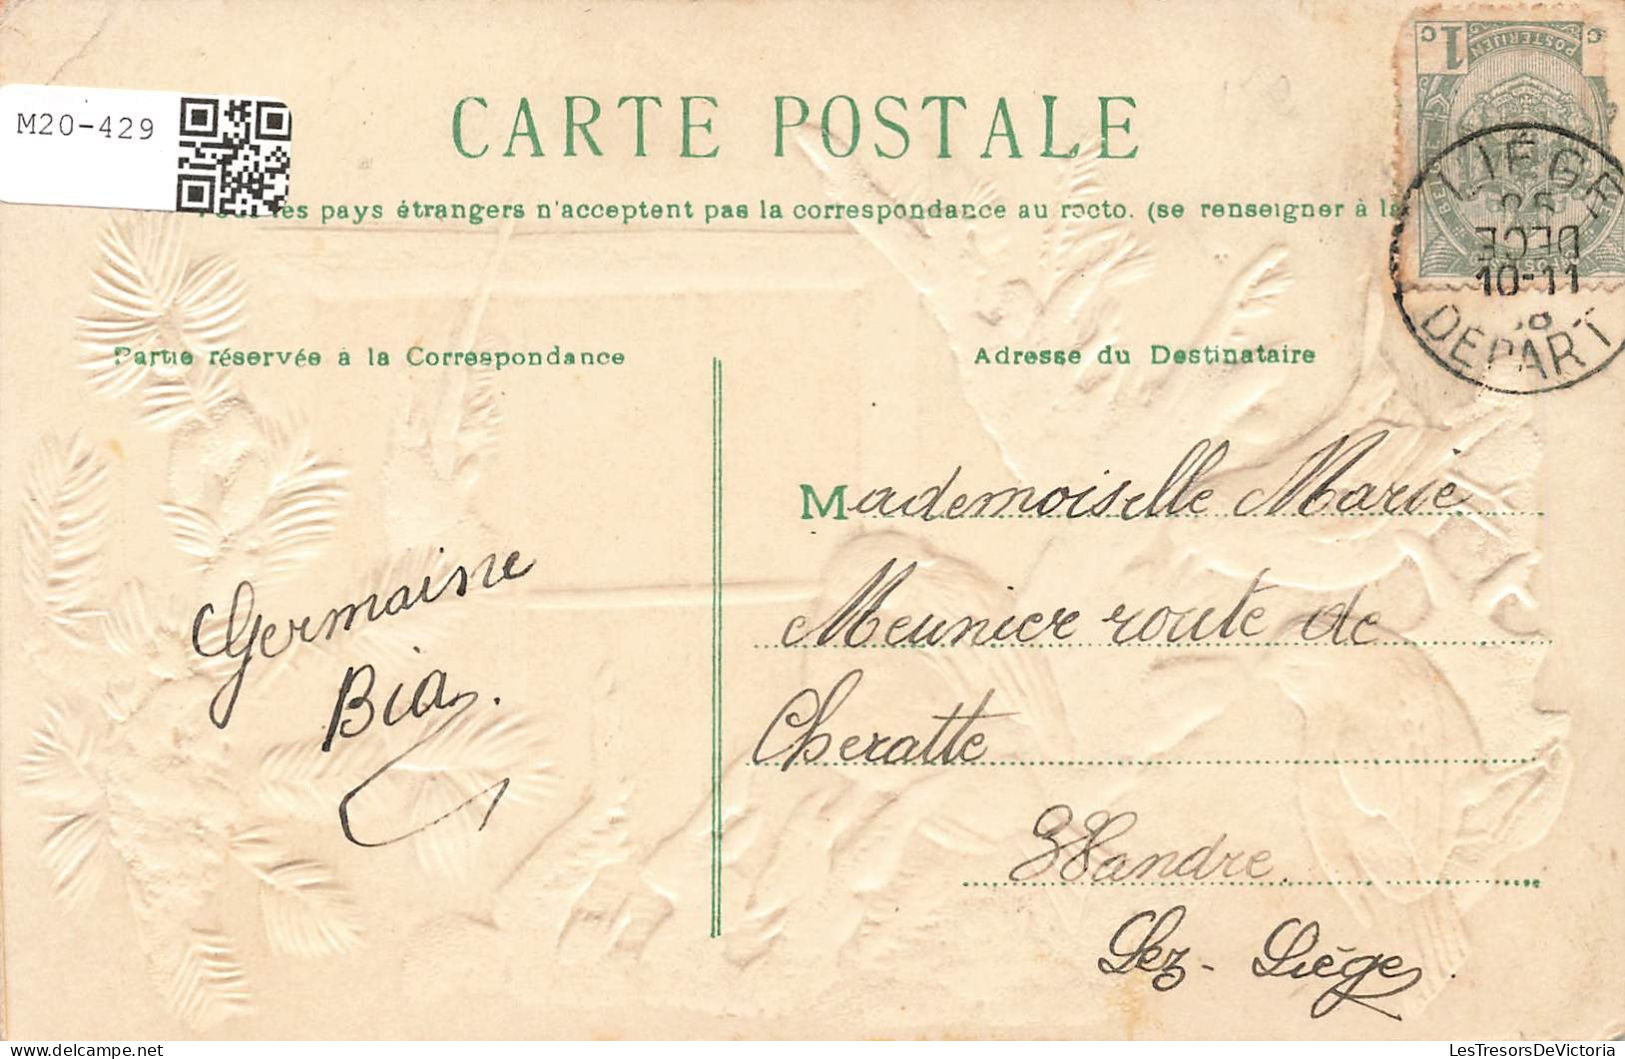 M20-429
CARTE POSTALE
les pays étrangers n'acceptent pas la correspondance au recto. (se renseigner à la
1 c
c
POSTERIJEN
LIÈGE
DECE
10-11
DEPART
Partie réservée à la Correspondance
Adresse du Destinataire
Germaine
Bia.
Mademoiselle Marie
Meunier route de
Cheratte
Wandre
Lez-Liége.
LesTresorsDeVictoria
www.delcampe.net